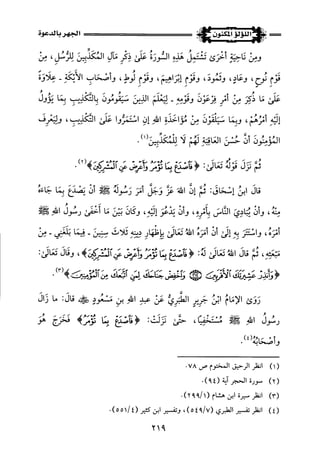 اللؤلؤ المكنون
الجهر بالدعوة
ومِنْ نَاحِيَةٍ أُخْرَى تَشْتَمِلُ هَذِهِ السُّورَةُ عَلَى ذِكْرِ مَآلِ المُكَذِّبِينَ لِلرُّسُلِ، مِنْ
قَوْمِ نُوحٍ، وعَادٍ، وثَمُودَ، وقَوْمِ إِبْرَاهِيمَ، وقَوْمِ لُوطٍ، وأَصْحَابِ الأَيْكَةِ - عِلَاوَةً
عَلَى مَا ذُكِرَ مِنْ أَمْرِ فِرْعَوْنَ وقَوْمِهِ - لِيَعْلَمَ الذِينَ سَيَقُومُونَ بِالتَّكْذِيبِ بِمَا يَؤُولُ
إِلَيْهِ أَمْرُهُمْ، وبِمَا سَيَلْقَوْنَ مِنْ مُؤَاخَذَةِ اللهِ إِنِ اسْتَمَرُّوا عَلَى التَّكْذِيبِ، ولِيَعْرِفَ
المُؤْمِنُونَ أَنَّ حُسْنَ العَاقِبَةِ لَهُمْ لَا لِلْمُكَذِّبِينَ(١).
ثُمَّ نَزَلَ قَوْلُهُ تَعَالَى: ﴿فَاصْدَعْ بِمَا تُؤْمَرُ وَأَعْرِضْ عَنِ الْمُشْرِكِينَ﴾(٢).
قَالَ ابنُ إِسْحَاقَ: ثُمَّ إِنَّ اللهَ عَزَّ وَجَلَّ أَمَرَ رَسُولَهُ ﷺ أَنْ يَصْدَعَ بِمَا جَاءَهُ
مِنْهُ، وأَنْ يُبَادِيَ النَّاسَ بِأَمْرِهِ، وأَنْ يَدْعُوَ إِلَيْهِ، وكَانَ بَيْنَ مَا أَخْفَى رسُولُ اللهِ ﷺ
أَمْرَهُ، واسْتَتَرَ بِهِ إِلَى أَنْ أَمَرَهُ اللهُ تَعَالَى بِإِظْهَارِ دِينِهِ ثَلَاثُ سِنِينَ - فِيمَا بَلَغَنِي - مِنْ
مَبْعَثِهِ، ثُمَّ قَالَ اللهُ تَعَالَى لَهُ: ﴿فَاصْدَعْ بِمَا تُؤْمَرُ وَأَعْرِضْ عَنِ الْمُشْرِكِينَ﴾، وقَالَ تَعَالَى:
﴿وَأَنذِرْ عَشِيرَتَكَ الْأَقْرَبِينَ وَاخْفِضْ جَنَاحَكَ لِمَنِ اتَّبَعَكَ مِنَ الْمُؤْمِنِينَ﴾(٣).
رَوَى الإِمَامُ ابْنُ جَرِيرٍ الطَّبَرِيُّ عَنْ عبدِ اللهِ بنِ مَسْعُودٍ ﷺ قَالَ: مَا زَالَ
رسُولُ اللهِ ﷺ مُسْتَخْفِيًا، حتَّى نَزَلَتْ: ﴿فَاصْدَعْ بِمَا تُؤْمَرُ﴾ فَخَرَجَ هُوَ
وأَصْحَابُهُ(٤).
(١) انظر الرحيق المختوم ص ٧٨.
(٢) سورة الحجر آية (٩٤).
(٣) انظر سيرة ابن هشام (٢٩٩/١).
(٤) انظر تفسير الطبري (٥٤٩/٧)، وتفسير ابن كثير (٥٥١/٤).
٢١٩